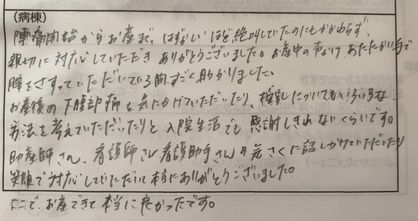 (病棟)
陣痛開始からお産まで、はずかしいほど絶叫していたのにもかかわらず、
親切に対応していただきありがとうございました。お産中の声かけ あたたかい手で
腰をさすっていただいている間すごく助かりました。
お産後の下腹部痛も気にかけていただいたり、授乳についてもいろいろな
方法も考えていただいたりと入院生活でも感謝しきれないくらいです。
助産師さん、看護師さん、看護助手さんも気さくに話しかけていただいたり
笑顔で対応していただいて本当にありがとうございました。
ここで、お産できて本当に良かったです。